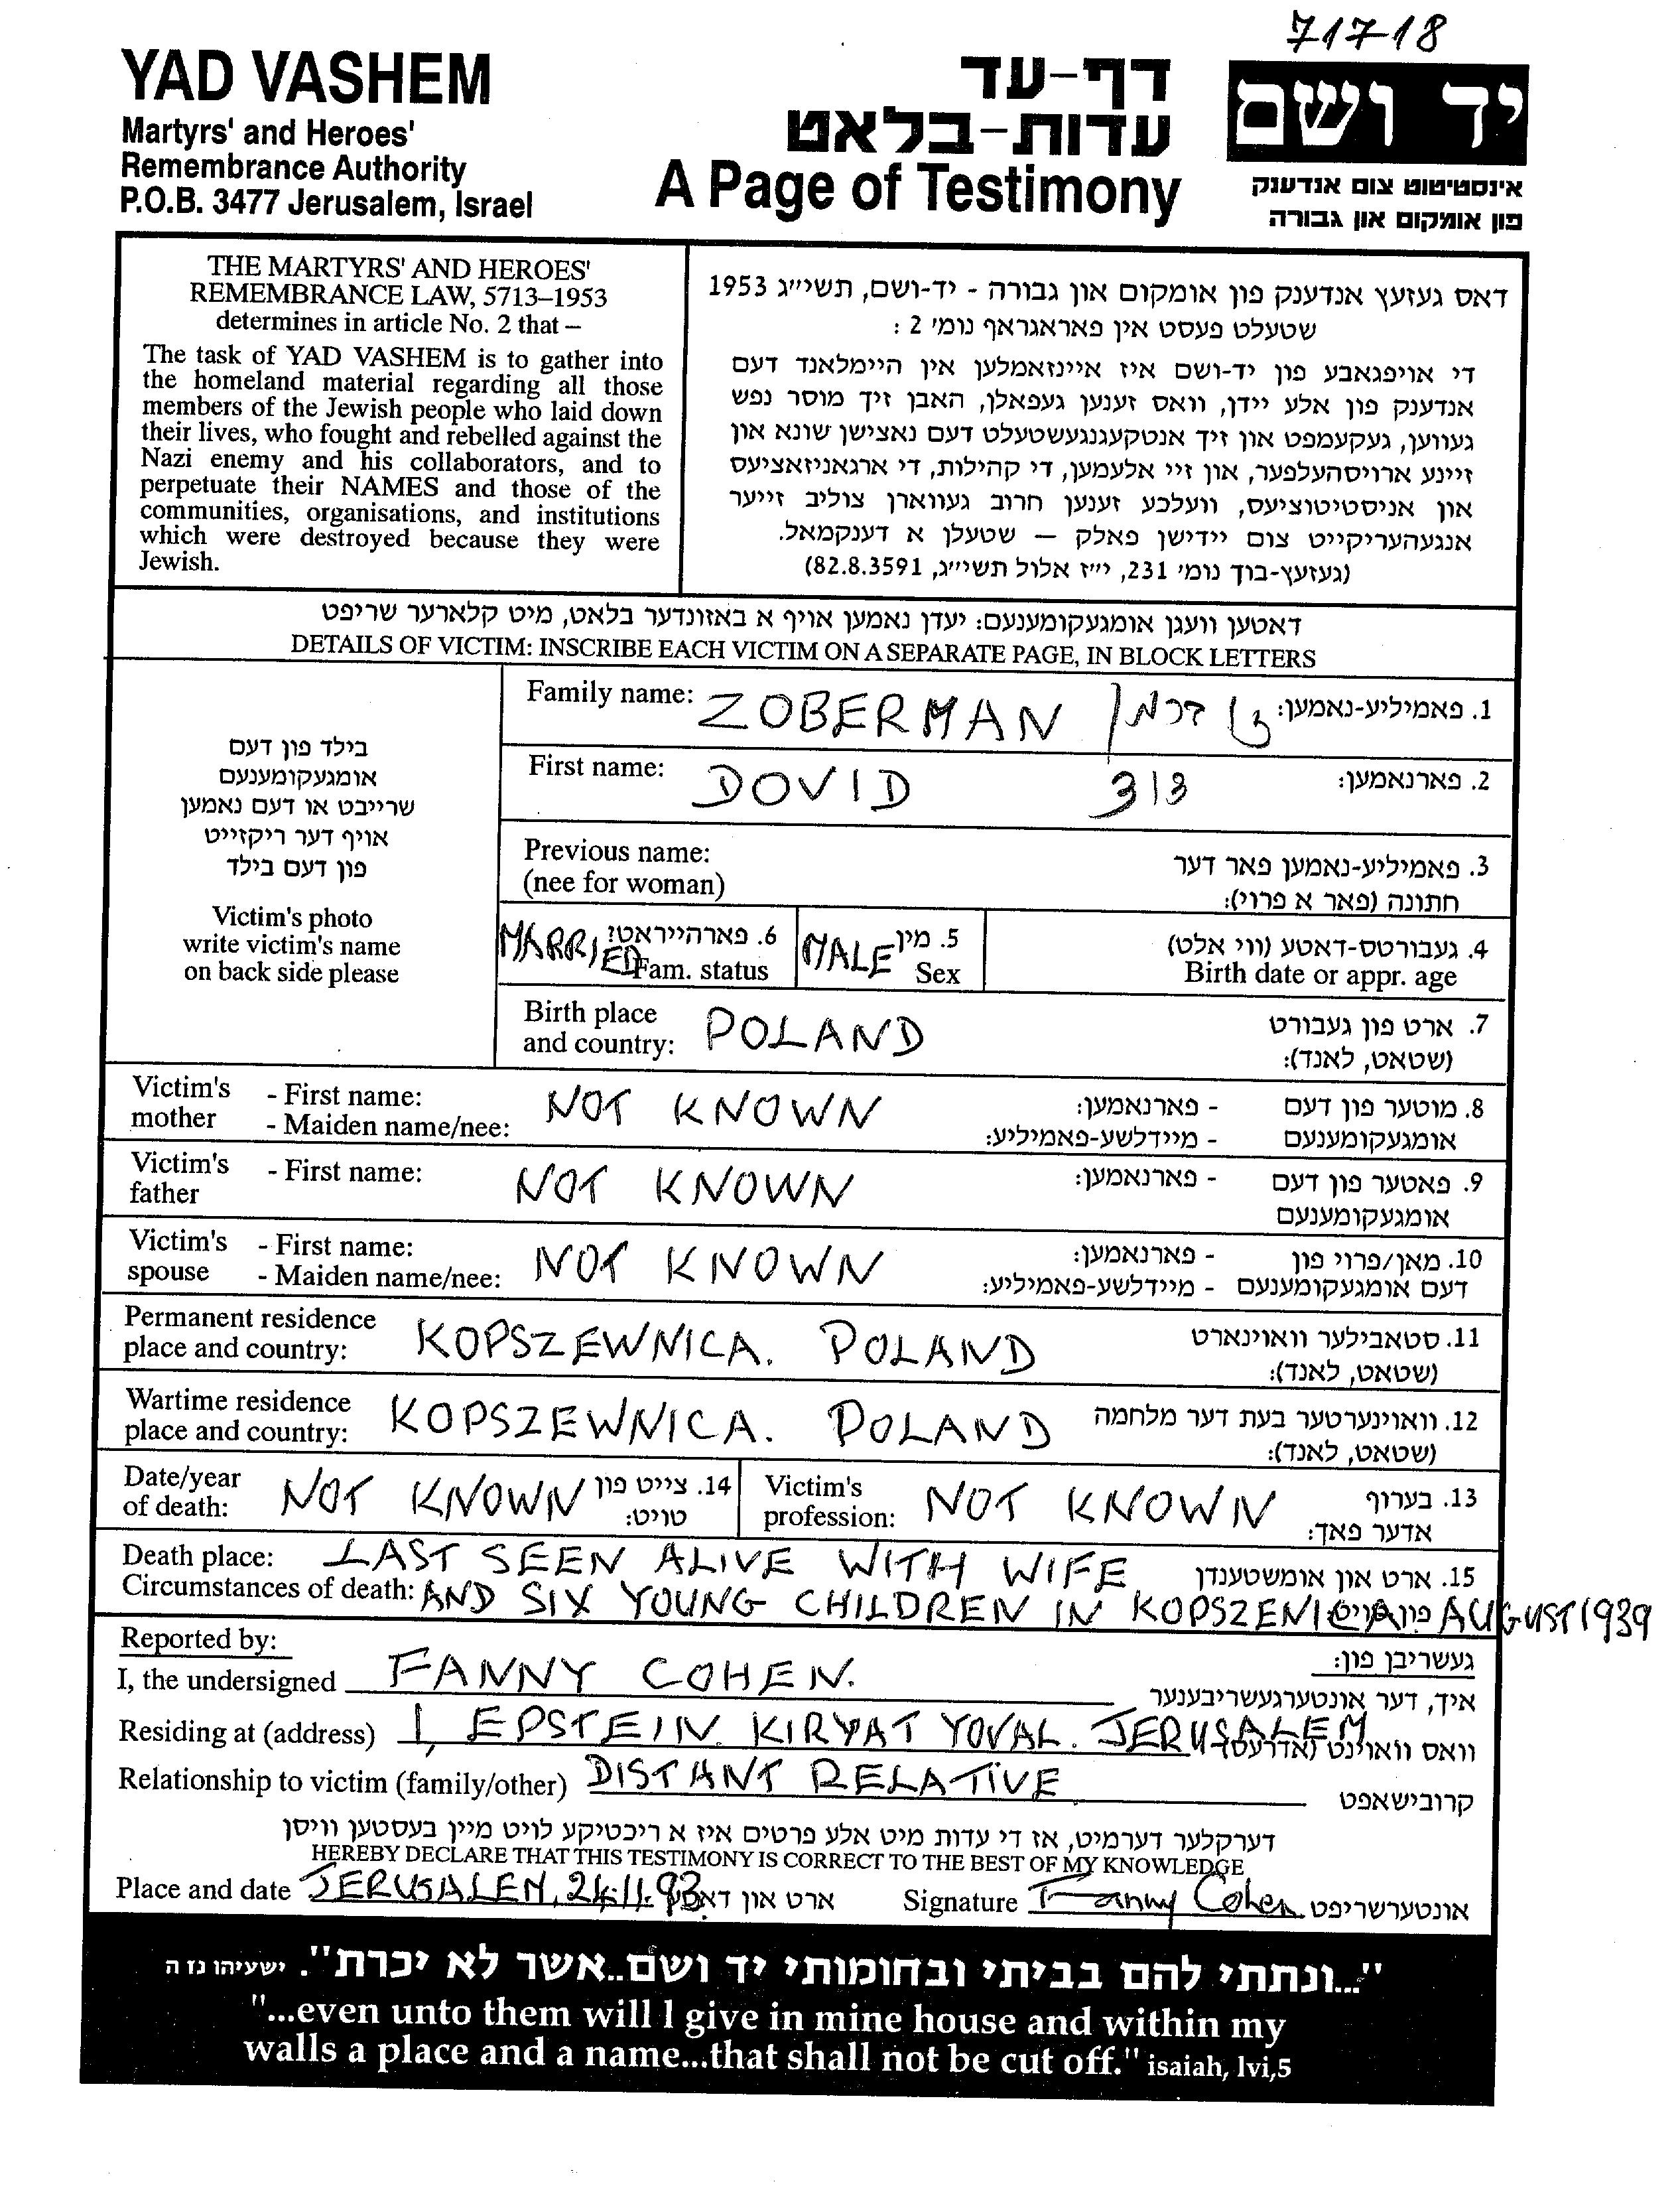 71718
YAD VASHEM
Martyrs' and Heroes'
Remembrance Authority
P.O.B. 3477 Jerusalem, Israel
דף-עד
עדות-בלאט
A Page of Testimony
יד ושם
אינסטיטוט צום אנדענק
פון אומקום און גבורה
THE MARTYRS' AND HEROES'
REMEMBRANCE LAW, 5713–1953
determines in article No. 2 that –
The task of YAD VASHEM is to gather into
the homeland material regarding all those
members of the Jewish people who laid down
their lives, who fought and rebelled against the
Nazi enemy and his collaborators, and to
perpetuate their NAMES and those of the
communities, organisations, and institutions
which were destroyed because they were
Jewish.
דאס געזעץ אנדענק פון אומקום און גבורה - יד-ושם, תשי״ג 1953
שטעלט פעסט אין פאראגראף נומ׳ 2 :
די אויפגאבע פון יד-ושם איז איינזאמלען אין היימלאנד דעם
אנדענק פון אלע יידן, וואס זענען געפאלן, האבן זיך מוסר נפש
געווען, געקעמפט און זיך אנטקעגנגעשטעלט דעם נאצישן שונא און
זיינע ארויסהעלפער, און זיי אלעמען, די קהילות, די ארגאניזאציעס
און אניסטיטוציעס, וועלכע זענען חרוב געווארן צוליב זייער
אנגעהעריקייט צום יידישן פאלק – שטעלן א דענקמאל.
(געזעץ-בוך נומ׳ 231, י״ז אלול תשי״ג, 82.8.3591)
דאטען וועגן אומגעקומענעם: יעדן נאמען אויף א באזונדער בלאט, מיט קלארער שריפט
DETAILS OF VICTIM: INSCRIBE EACH VICTIM ON A SEPARATE PAGE, IN BLOCK LETTERS
בילד פון דעם
אומגעקומענעם
שרייבט או דעם נאמען
אויף דער ריקזייט
פון דעם בילד
Victim's photo
write victim's name
on back side please
Family name: ZOBERMAN 1. פאמיליע-נאמען:
First name: DOVID דוד 2. פארנאמען:
Previous name: 3. פאמיליע-נאמען פאר דער
(nee for woman) חתונה (פאר א פרוי):
MARRIED 6. פארהייראט? MALE 5. מין 4. געבורטס-דאטע (ווי אלט)
Fam. status Sex Birth date or appr. age
Birth place 7. ארט פון געבורט
and country: POLAND (שטאט, לאנד):
Victim's - First name: NOT KNOWN - פארנאמען: 8. מוטער פון דעם
mother - Maiden name/nee: - מיידלשע-פאמיליע: אומגעקומענעם
Victim's - First name: NOT KNOWN - פארנאמען: 9. פאטער פון דעם
father אומגעקומענעם
Victim's - First name: NOT KNOWN - פארנאמען: 10. מאן/פרוי פון
spouse - Maiden name/nee: - מיידלשע-פאמיליע: דעם אומגעקומענעם
Permanent residence 11. סטאבילער וואוינארט
place and country: KOPSZEWNICA. POLAND (שטאט, לאנד):
Wartime residence 12. וואוינערטער בעת דער מלחמה
place and country: KOPSZEWNICA. POLAND (שטאט, לאנד):
Date/year 14. צייט פון Victim's 13. בערוף
of death: NOT KNOWN טויט: profession: NOT KNOWN אדער פאך:
Death place: LAST SEEN ALIVE WITH WIFE 15. ארט און אומשטענדן
Circumstances of death: AND SIX YOUNG CHILDREN IN KOPSZENICA פון טויט: AUGUST 1939
Reported by: געשריבן פון:
I, the undersigned FANNY COHEN. איך, דער אונטערגעשריבענער
Residing at (address) 1, EPSTEIN. KIRYAT YOVAL. JERUSALEM וואס וואוינט (אדרעס)
Relationship to victim (family/other) DISTANT RELATIVE קרובישאפט
דערקלער דערמיט, אז די עדות מיט אלע פרטים איז א ריכטיקע לויט מיין בעסטען וויסן
HEREBY DECLARE THAT THIS TESTIMONY IS CORRECT TO THE BEST OF MY KNOWLEDGE
Place and date JERUSALEM, 24.11.93. ארט און דאטע Signature Fanny Cohen אונטערשריפט
"...ונתתי להם בביתי ובחומותי יד ושם..אשר לא יכרת". ישעיהו נז ה
"...even unto them will I give in mine house and within my
walls a place and a name...that shall not be cut off." isaiah, lvi,5